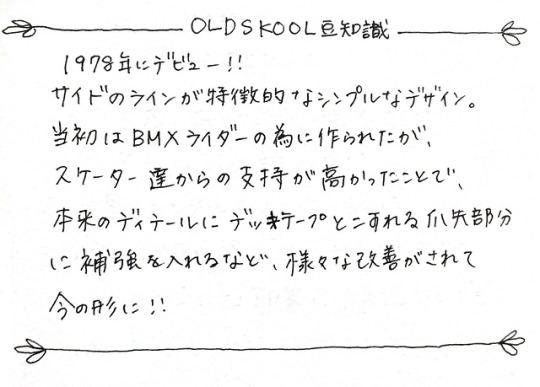 OLDSKOOL豆知識
1978年にデビュー!!
サイドのラインが特徴的なシンプルなデザイン。
当初はBMXライダーの為に作られたが、
スケーター達からの支持が高かったことで、
本来のディテールにデッキテープとこすれる爪先部分
に補強を入れるなど、様々な改善がされて
今の形に!!